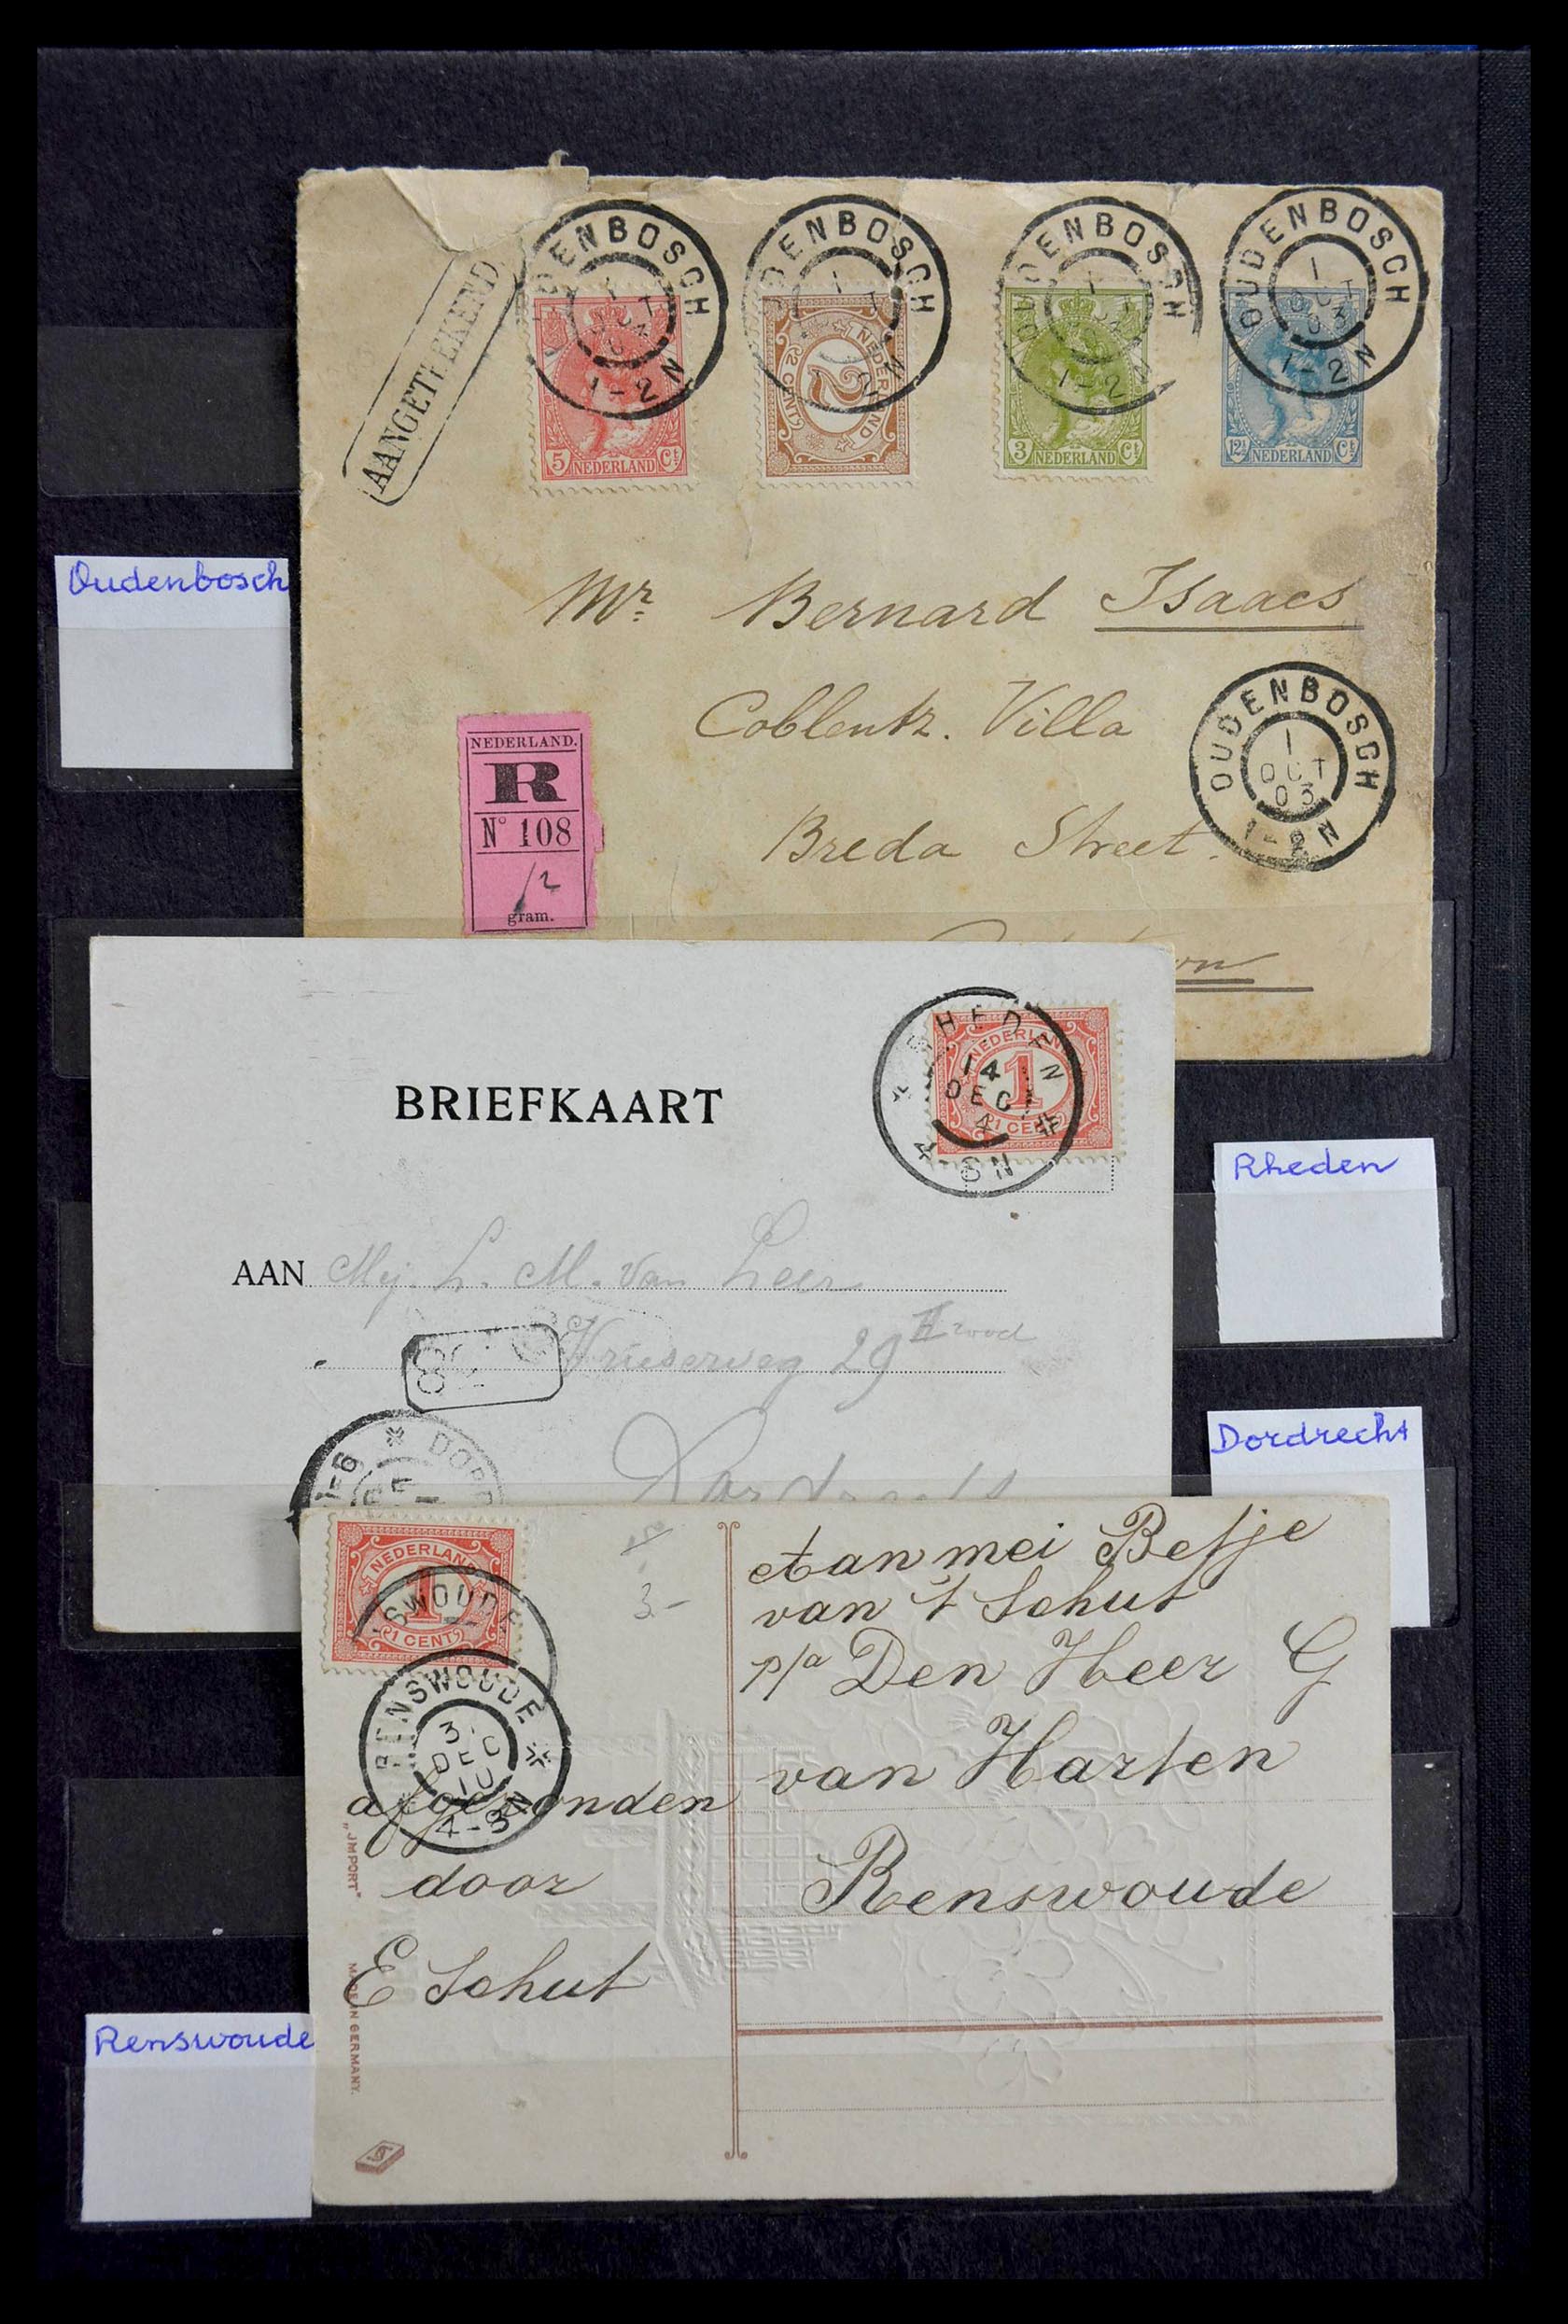 AANGETEKEND
OUDENBOSCH
1
OCT
03
1-2N
OUDENBOSCH
1
OCT
1-2N
OUDENBOSCH
1
OCT
1-2N
OUDENBOSCH
1
OCT
03
1-2N
5 NEDERLAND Ct
NEDERLAND
2
2 CENT
3 NEDERLAND Ct
12½ NEDERLAND Ct
Oudenbosch
Mr. Bernard Isaacs
Coblentz. Villa
Breda Street.
OUDENBOSCH
1
OCT
03
1-2N
NEDERLAND.
R
N° 108
/2
gram.
BRIEFKAART
RHEDEN
14
DEC
4
4-8N
NEDERLAND
1
1 CENT
Rheden
AAN Mej. L. M. van Leer
Vrieseweg 29 II rood
Dordrecht
DORD
Dordrecht
NEDERLAND
1
1 CENT
SWOUDE
RENSWOUDE
3
DEC
10
4-8N
3.-
Aan mei Betje
van 't Schut
p/a Den Heer G
van Harten
Renswoude
afgezonden
door
E Schut
„IMPORT"
MADE IN GERMANY.
Renswoude